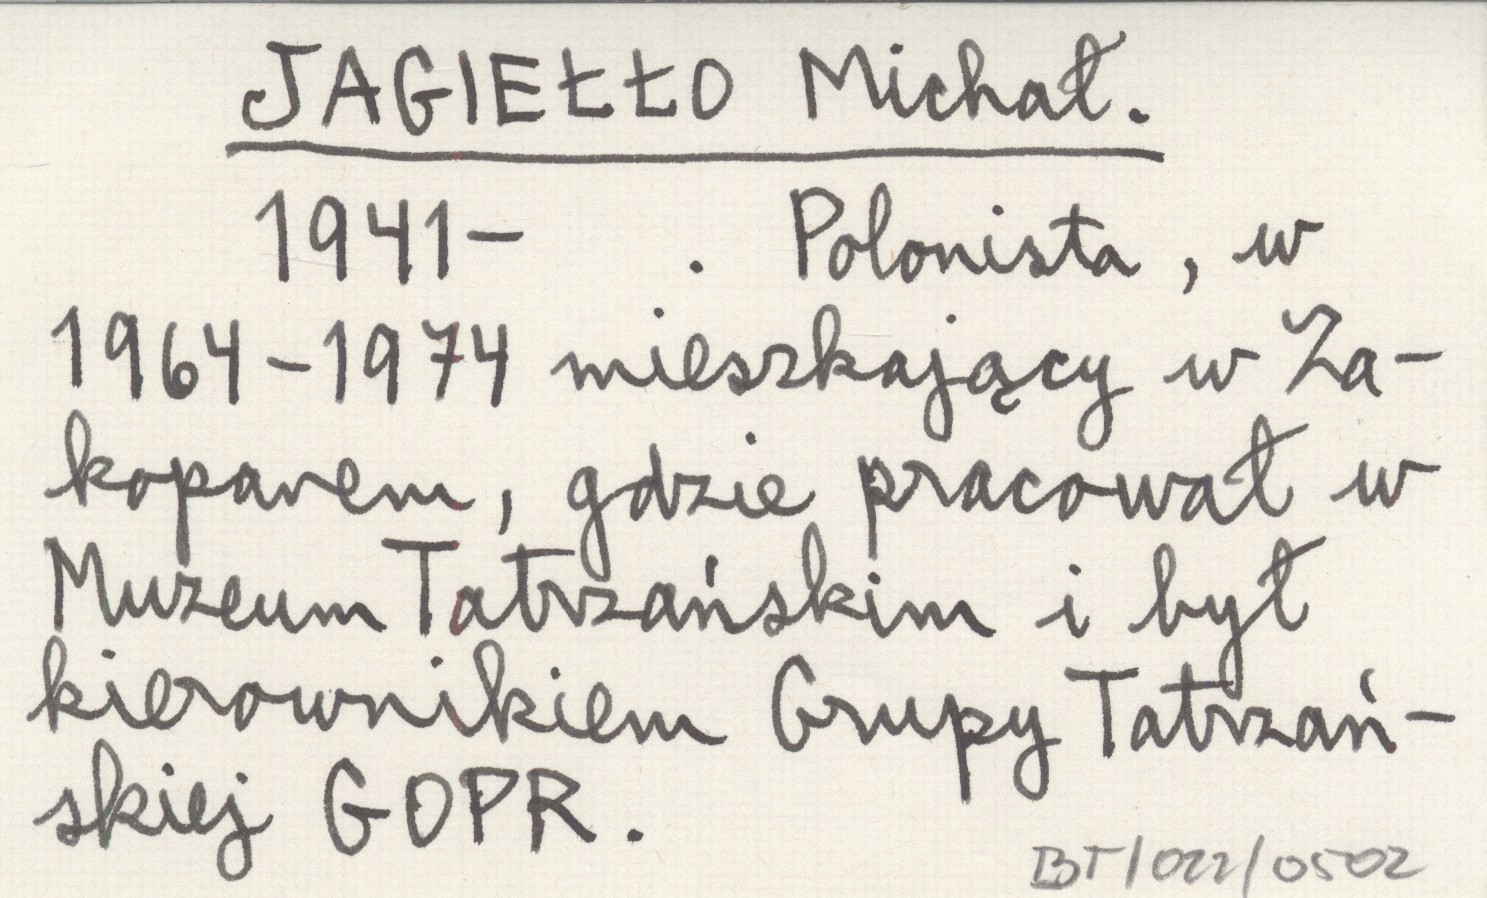 JAGIEŁŁO Michał.
1941-      . Polonista, w
1964-1974 mieszkający w Za-
kopanem, gdzie pracował w
Muzeum Tatrzańskim i był
kierownikiem Grupy Tatrzań-
skiej GOPR.
BT/022/0502